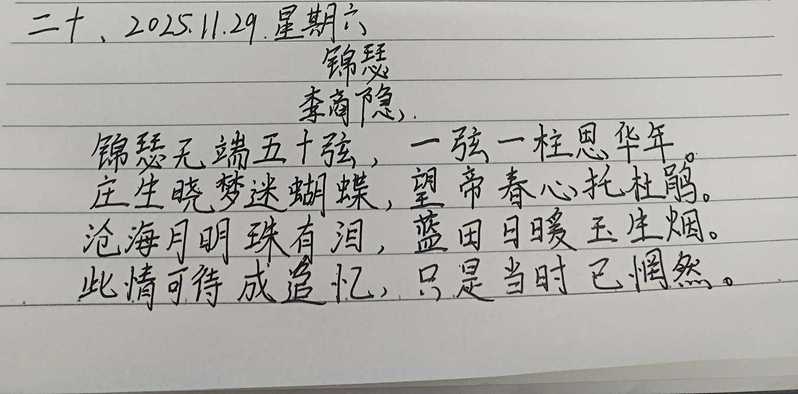 二十、2025.11.29.星期六
锦瑟
李商隐.
锦瑟无端五十弦，一弦一柱思华年。
庄生晓梦迷蝴蝶，望帝春心托杜鹃。
沧海月明珠有泪，蓝田日暖玉生烟。
此情可待成追忆，只是当时已惘然。